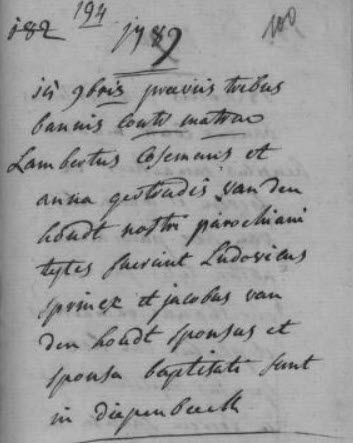 182 194
100
1789
iii 9bris praeviis tribus
bannis contr matrae
Lambertus Cosemans et
anna gertrudis van den
houdt nostri parochiani
testes fuerunt Ludovicus
sprinex et jacobus van
den houdt sponsus et
sponsa baptisati sunt
in diepenbeeck